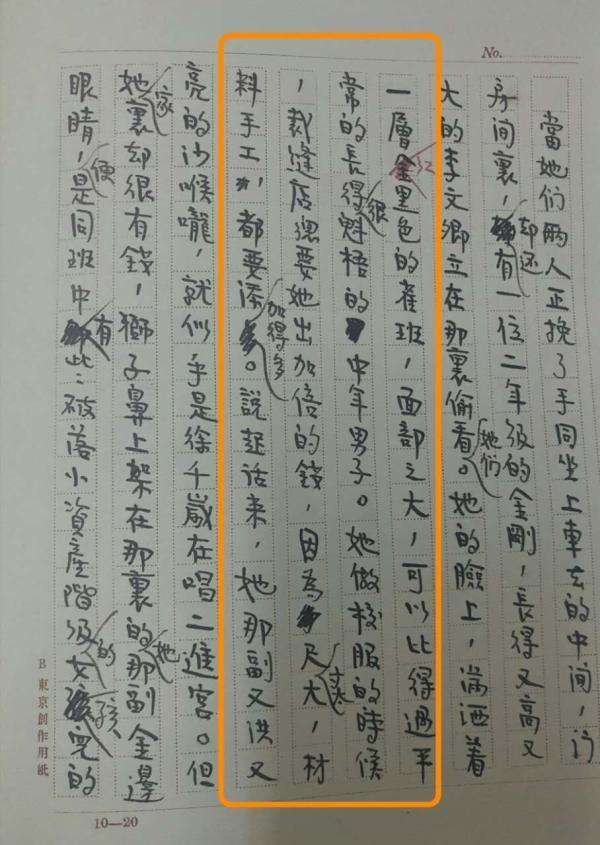 No.
當她们兩人正挽了手同坐上車去的中间，
房间裏，却还有一位二年级的金刚，長得又高又
大的李文卿立在那裏偷看她们。她的臉上，满洒着
一層红黑色的雀斑，面部之大，可以比得过平
常的長得很魁梧的中年男子。她做校服的時候
，裁縫店總要她出加倍的錢，因為尺寸太大，材
料手工，都要添加得多。說起话来，她那副又洪又
亮的沙喉嚨，就似乎是徐千歲在唱二進宮。但
她家裏却很有錢，獅子鼻上架在那裏的她那副金邊
眼睛，便是同班中有些破落小資產階级的女孩兒的
B 東京創作用紙
10—20